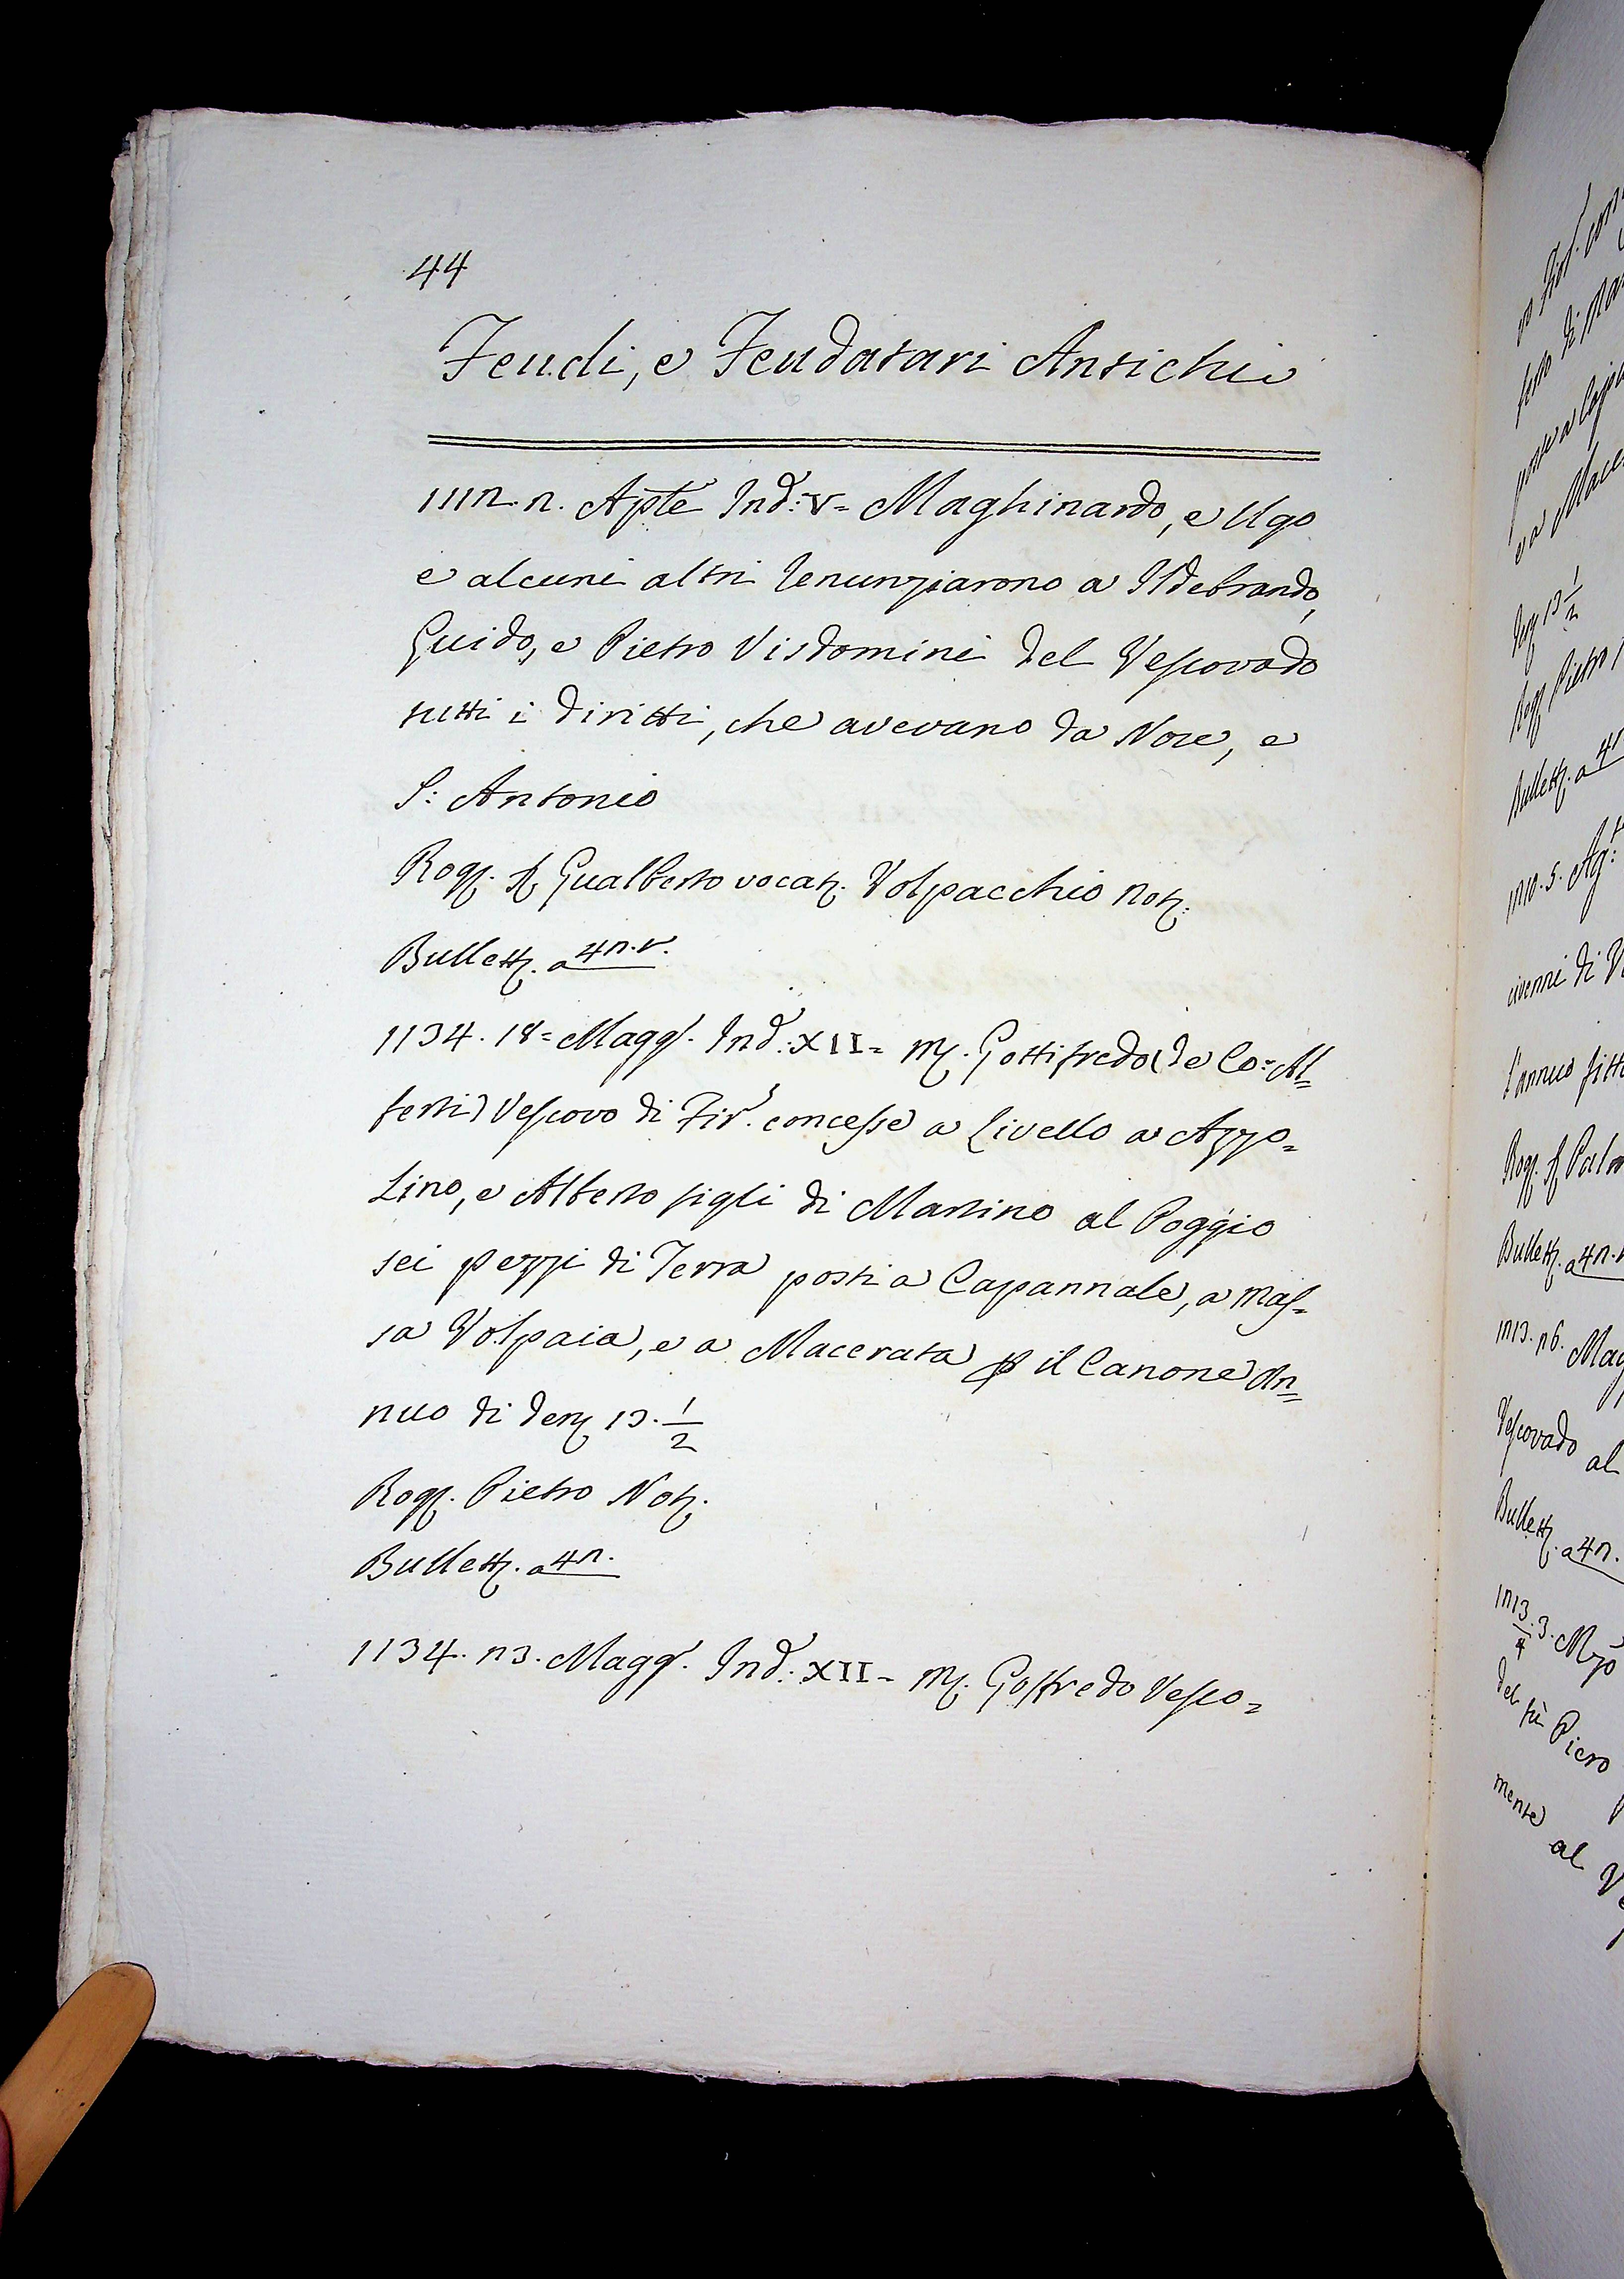 44
Feudi, e Feudatari Antichi
1112. 2. Aple Ind: V= Maghinardo, e Ugo
e alcuni altri renunziarono a Ildebrando,
Guido, e Pietro Visdomini del Vescovado
tutti i diritti, che avevano da Noce, e
S: Antonio
Rog. S. Gualberto vocat. Volpacchio Not.
Bullett. a 42. v.
1134. 18= Magg. Ind: XII= M. Gottifredo (de Co: Al=
berti) Vescovo di Fir. concesse a Livello a Azzo=
lino, e Alberto figli di Martino al Poggio
sei pezzi di Terra posti a Capannale, a Mas=
sa Volpaia, e a Macerata p il Canone An=
nuo di den. 13. 1/2
Rog. Pietro Not.
Bullett. a 42.
1134. 23. Magg. Ind: XII= M. Goffredo Vesco=
di Ma
Rog. Pietro
Bullett. a 42
l'annuo fitto
Bullett. a 42.
Vescovado al
Bullett. a 42.
del fù Piero
mente al